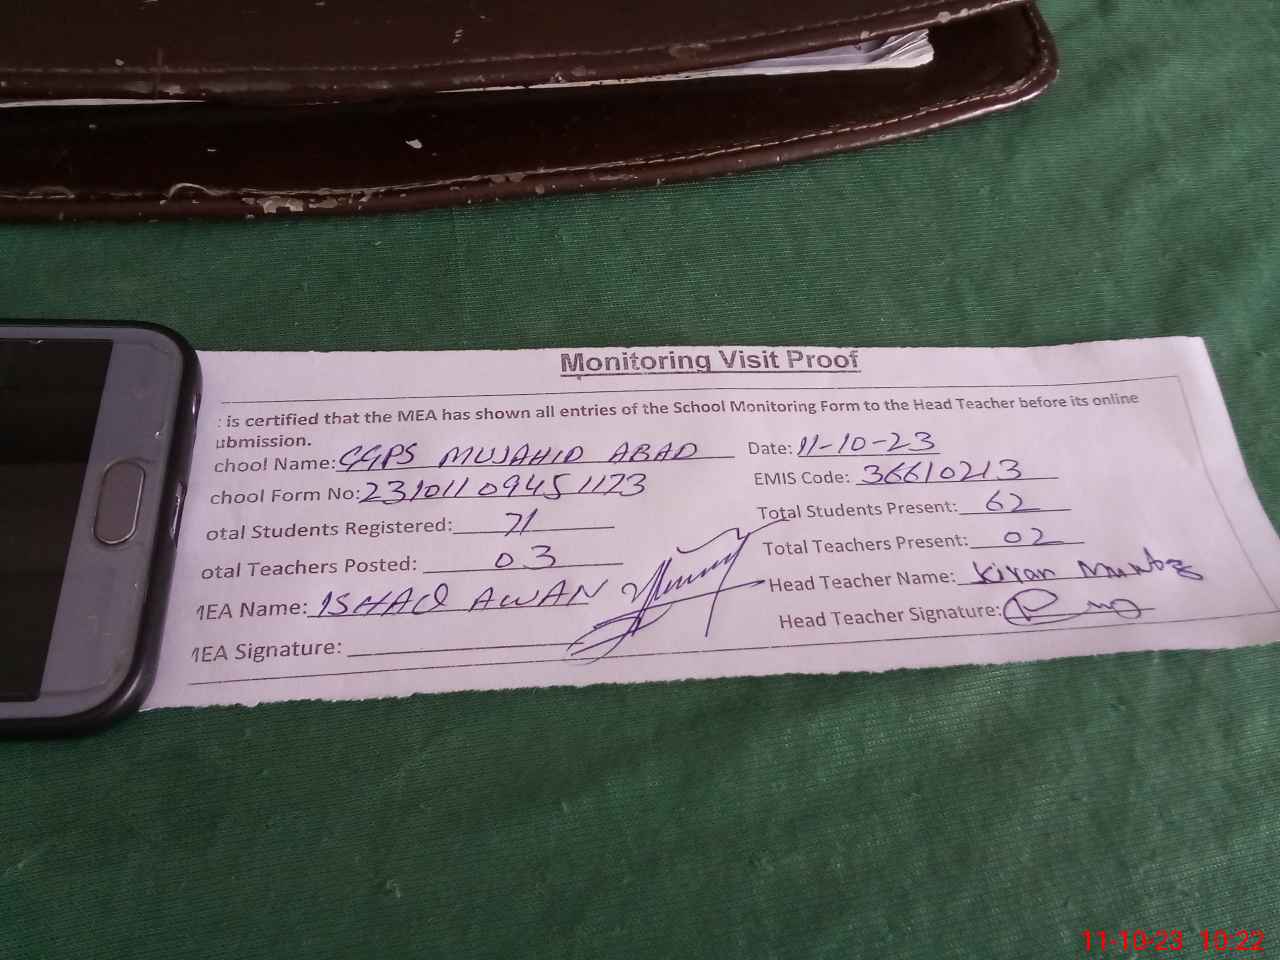 Monitoring Visit Proof
: is certified that the MEA has shown all entries of the School Monitoring Form to the Head Teacher before its online
ubmission.
chool Name: GGPS MUJAHID ABAD Date: 11-10-23
chool Form No: 23101109451173 EMIS Code: 36610213
otal Students Registered: 71 Total Students Present: 62
otal Teachers Posted: 03 Total Teachers Present: 02
MEA Name: ISHAQ AWAN Head Teacher Name: Kiran Mumtaz
MEA Signature: Head Teacher Signature:
11-10-23 10:22